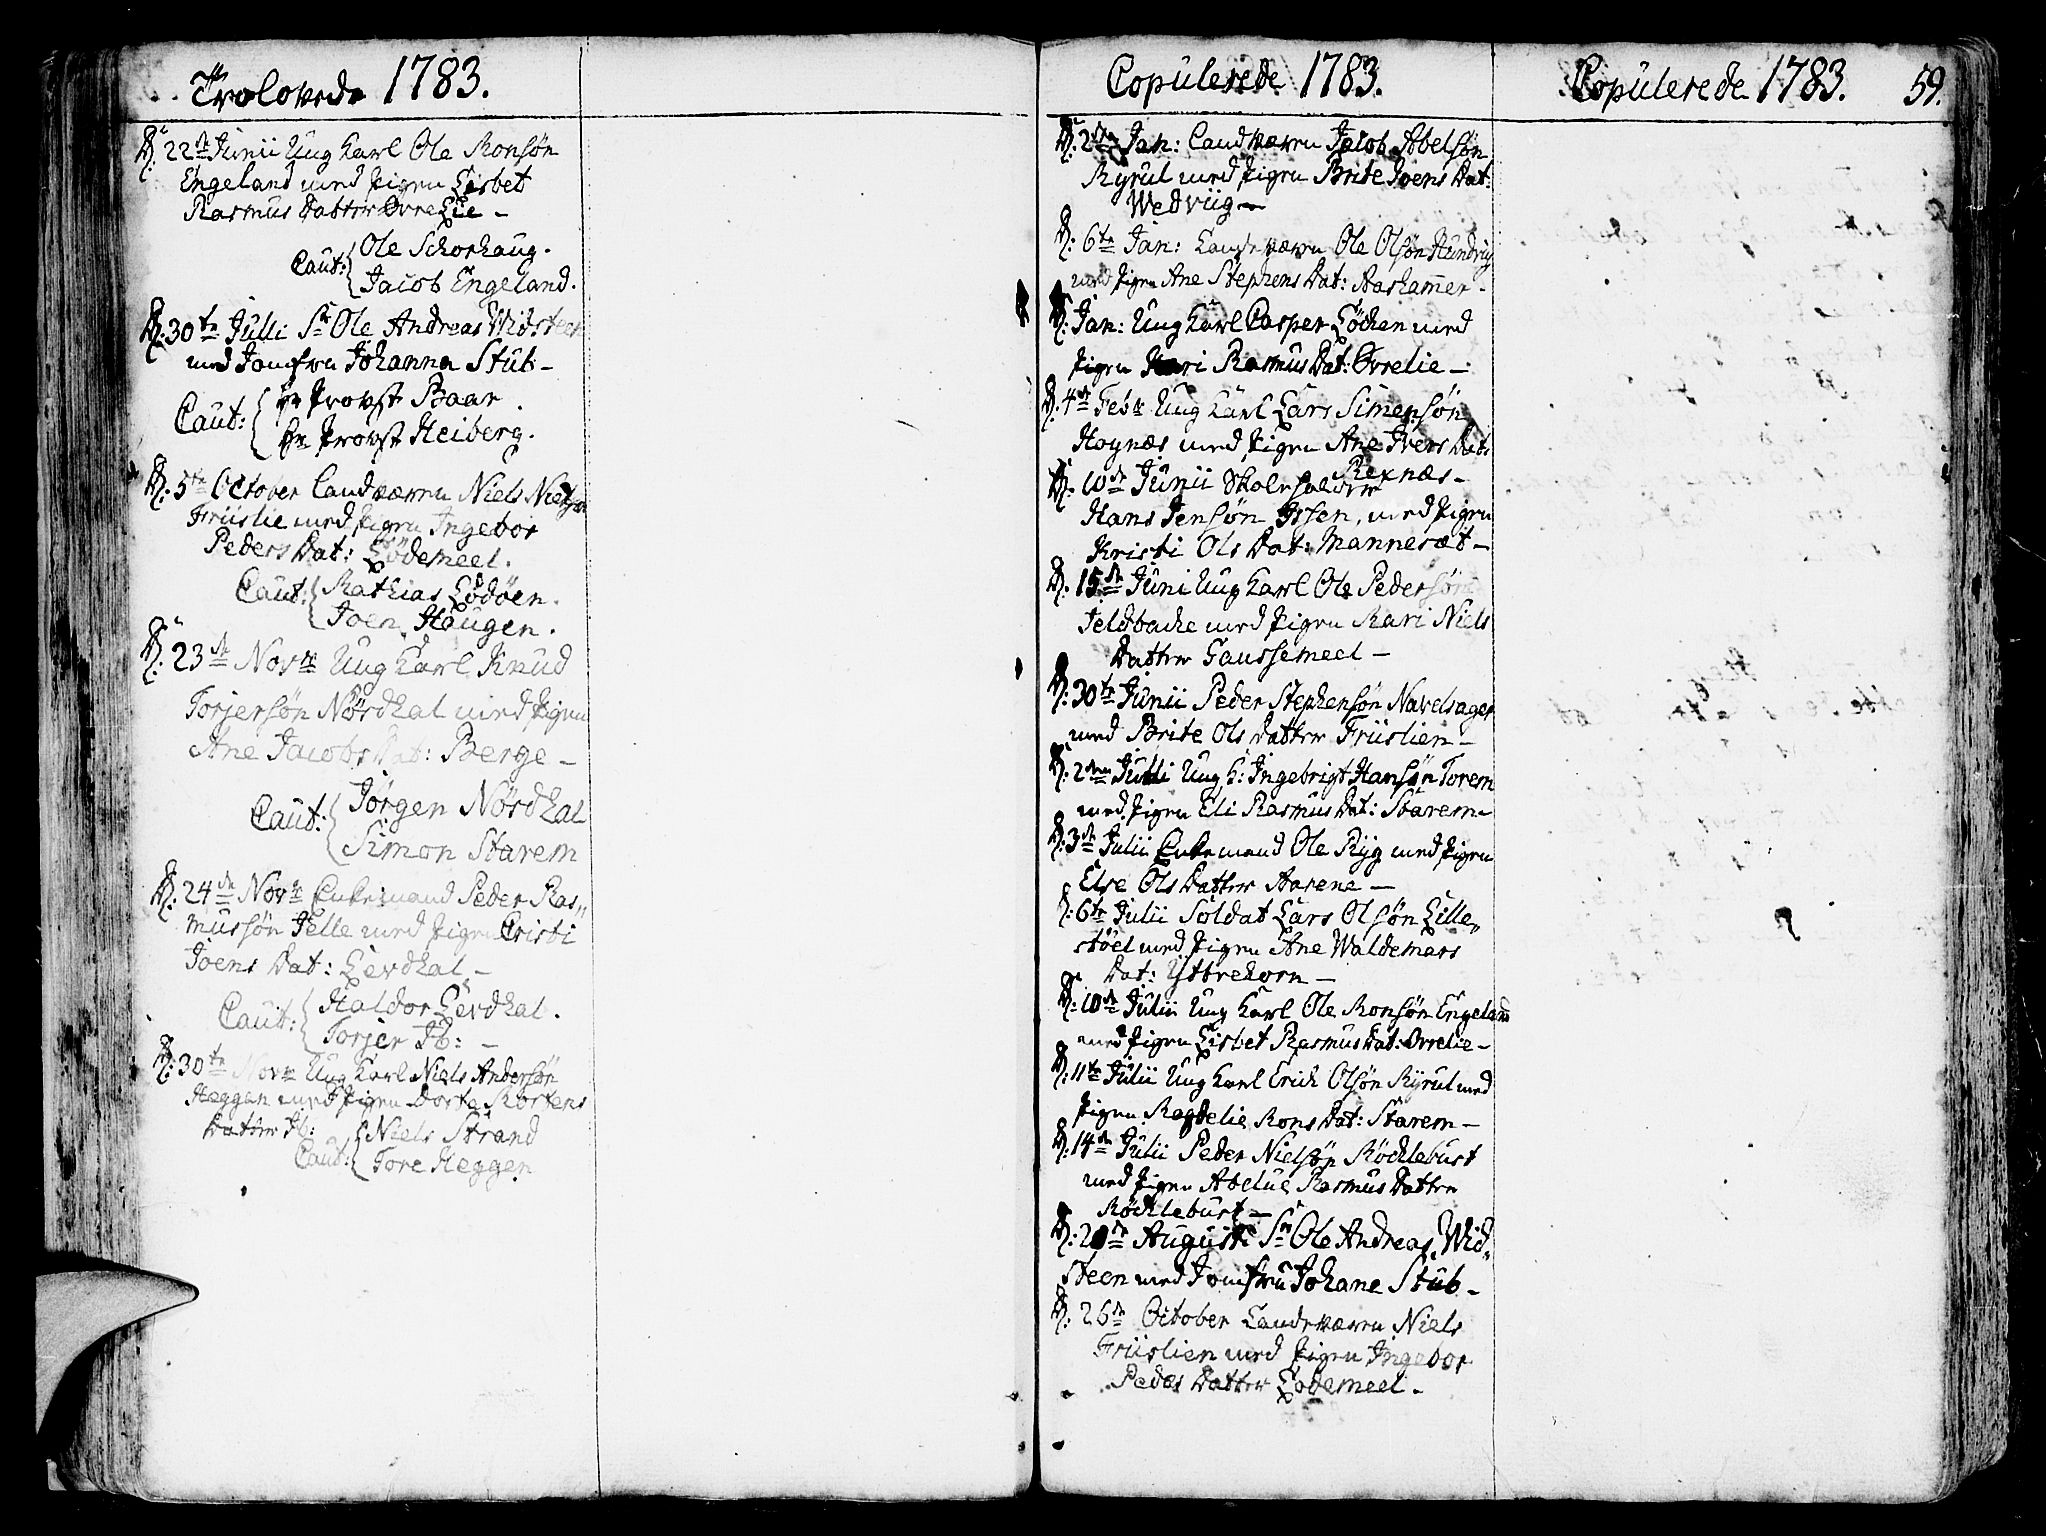 Trolovede 1783.
D: 22de Junii Ung Karl Ole Monsøn
Engeland med Pigen Lisbet
Rasmus Datter Øvre Lie -
Caut: Ole Schorhaug.
Jacob Engeland.
D: 30te Julii Sr Ole Andreas Widsteen
med Jomfru Johanna Stub -
Caut: Hr Provst Baar
Hr Provst Heiberg.
D: 5te October Landværn Niels Nielsøn
Friislie med Pigen Ingebor
Peders Dat: Lödemeel.
Caut: Mathias Lodöen.
Joen Haugen.
D: 23de Novbr Ung Karl Knud
Torjersøn Nørdhal med Pigen
Ane Jacobs Dat: Berge -
Caut: Jørgen Nørdhal
Simon Starem
D: 24de Novbr Enkemand Peder Ras„
mussøn Felle med Pigen Cristi
Joens Dat: Lerdhal -
Caut: Haldor Lerdhal.
Torjer Ib: -
D: 30te Novbr Ung Karl Niels Andersøn
Heggen med Pigen Dorte Mortens
Datter Ib:
Caut: Niels Strand
Tore Heggen
Copulerede 1783.
D: 2den Jan: Landværn Jacob Abelsøn
Myrul med Pigen Brite Joens Dat:
Wedviig -
D: 6te Jan: Landeværn Ole Olsøn Hundviig
med Pigen Ane Stephens Dat: Aaskammer -
D: Jan: Ung Karl Casper Löchen med
Pigen Mari Rasmus Dat: Øvrelie -
D: 4de Febr Ung Karl Lars Simensøn
Høynæs med Pigen Ane Ivers Dat:
Rexnæs -
D: 10de Junii Skoleholder
Hans Jensøn Issen, med Pigen
Kristi Ols Dat: Mannesæt -
D: 15de Juni Ung Karl Ole Pedersøn
Feldbacke med Pigen Mari Niels
Datter Gaussemeel -
D: 30te Junii Peder Stephensøn Navelsager
med Brite Ols Datter Friislien -
D: 2den Julii Ung K: Ingebrigt Hansøn Torem
med Pigen Eli Rasmus Dat: Starem -
D: 3de Julii Enkemand Ole Ryg med Pigen
Else Ols Datter Aarene -
D: 6te Julii Soldat Lars Olsøn Lille„
støel med Pigen Ane Waldemars
Dat: Ytrehorn -
D: 10de Julii Ung Karl Ole Monsøn Engeland
med Pigen Lisbet Rasmus Dat: Øvrelie -
D: 11te Julii Ung Karl Erich Olsøn Myrul med
Pigen Magdelie Mons Dat: Starem -
D: 14de Julii Peder Nielsøn Röchlebust
med Pigen Abelue Rasmus Datter
Röchlebust -
D: 20de Augusti Sr Ole Andreas Wid„
steen med Jomfru Johane Stub -
D: 26de October Landeværn Niels
Friislien med Pigen Ingebor
Peders Datter Lodemeel -
Copulerede 1783.
59.